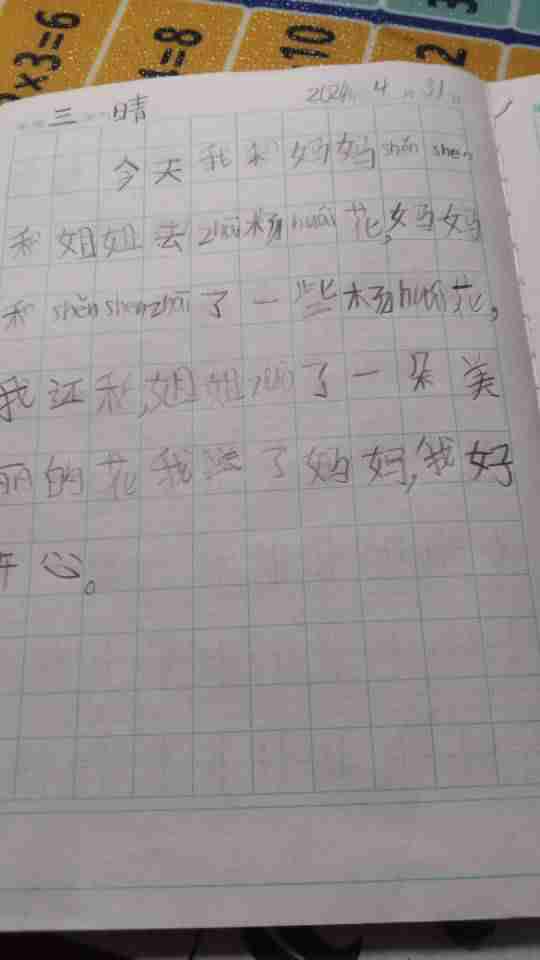 ×3=6
=8
10
2
3
三 晴 2024年 4月 31日
今天我和妈妈shěn shen
和姐姐去zhāi杨huái花,妈妈
和shěn shen zhāi了一些杨huái花,
我还和,姐姐zhāi了一朵美
丽的花我送了妈妈,我好
开心。